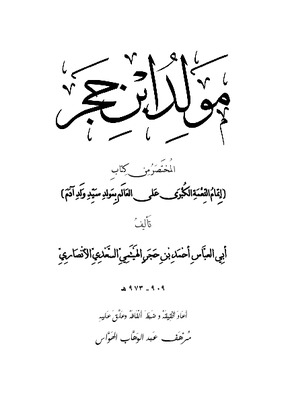 مَولِدُ ابْنِ حَجَر
المُختَصَرُ مِن كِتَابِ
(إتمَامُ النِّعْمَةِ الكُبْرَى عَلى العَالَمِ بِمَولِدِ سَيِّدِ وَلَدِ آدَمَ)
تَأليفُ
أبي العبَّاسِ أحْمَدِ بْنِ حَجَرٍ الهَيْتَميِّ السَّعْدِيِّ الأنْصَارِيِّ
٩٠٩ - ٩٧٣ هـ
وعلّق عليه
مرهف عبد الوهاب الحوّاس